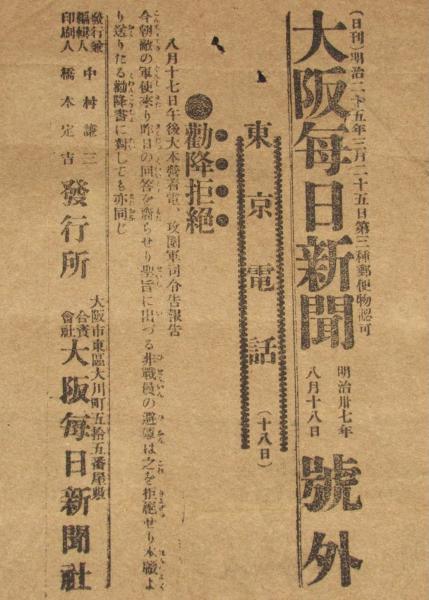 (日刊)明治二十五年三月二十五日第三種郵便物認可
大阪每日新聞 明治卅七年八月十八日 號外
東京電話 (十八日)
勸降拒絶
八月十七日午後大本營着電、攻圍軍司令官報告
今朝敵の軍使來り昨日の回答を齎らせり聖旨に出づる非戰員の避難は之を拒絶せり本職よ
り送りたる勸降書に對しても亦同じ
發行兼編輯人 中村謙三
印刷人 橋本定吉
發行所
大阪市東區大川町五拾五番屋敷
合資會社 大阪每日新聞社